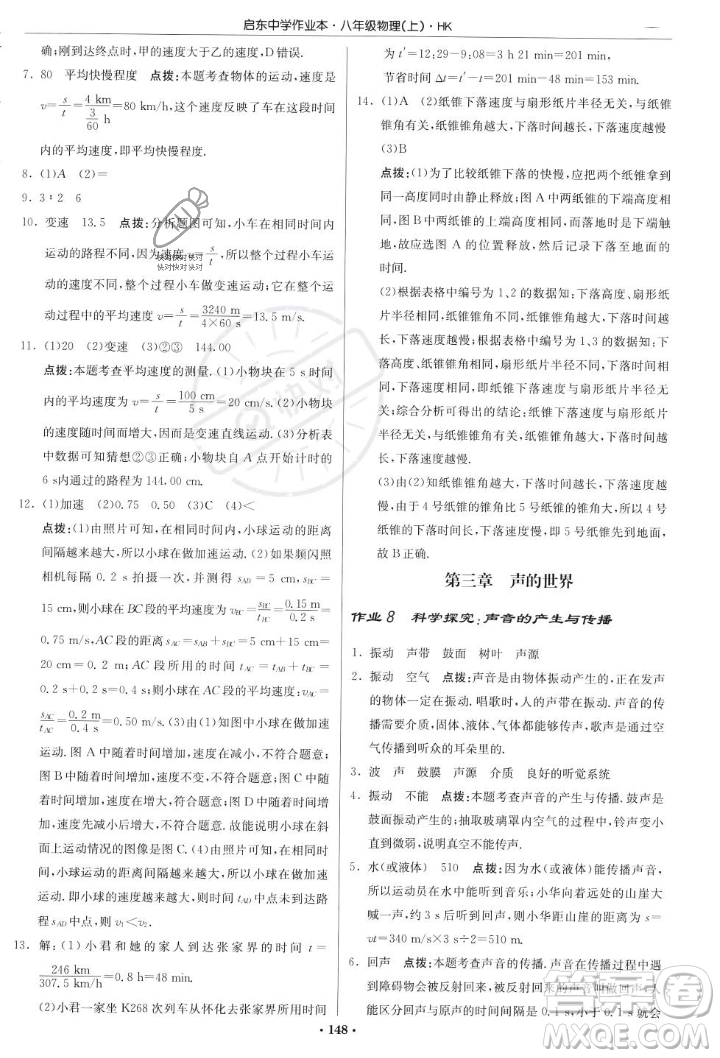 启东中学作业本·八年级物理(上)·HK
确;刚到达终点时,甲的速度大于乙的速度,D错误.
7. 80 平均快慢程度 点拨:本题考查物体的运动,速度是
v=s/t=4 km/(3/60 h)=80 km/h,这个速度反映了车在这段时间
内的平均速度,即平均快慢程度.
8. (1)A (2)=
9. 3∶2 6
10. 变速 13.5 点拨:分析题图可知,小车在相同时间内
运动的路程不同,因为速度=
动的速度不同,所以整个过程小车做变速运动.小车运
动过程中的平均速度v=s/t=3240 m/(4×60 s)=13.5 m/s.
11. (1)20 (2)变速 (3)②③ 144.00
点拨:本题考查平均速度的测量.(1)小物块在5 s时间
内的平均速度v=s/t=100 cm/5 s=20 cm/s;(2)小物块
的速度随时间而增大,因而是变速直线运动.(3)分析表
中数据可知猜想②③正确;小物块自A点开始计时,
6 s内通过的路程为144.00 cm.
12. (1)加速 (2)0.75 0.50 (3)C (4)<
点拨:(1)由照片可知,在相同时间内,小球运动的距离
间隔越来越大,所以小球在做加速运动.(2)如果频闪照
相机每隔0.2 s拍摄一次,BC段的距离sBC=15 cm=0.15
m,则小球从B到C的平均速度是:vBC=sBC/tBC=0.15 m/0.2 s=
0.75 m/s,AC段的距离sAC=sAB+sBC=5 cm+15 cm=
20 cm=0.2 m,AC段所用的时间tAC=tAB+tBC=
0.2 s+0.2 s=0.4 s,则小球在AC段的平均速度vAC=
sAC/tAC=0.2 m/0.4 s=0.50 m/s.(3)由(1)知图中小球在做加速
运动.图A中随着时间增加,速度减小,不符合题意;图
B中随着时间增加,速度不变,不符合题意;图C中随着
时间增加,速度增加,符合题意;图D中随着时间增加,
速度先减小后增大,不符合题意.故能大致反映小球在斜
面上运动情况的图像是C.(4)由图示可知,小球的运动
速度越来越大,小球运动时间到达一半时,未能到达路
程sAD中点,则v1<v2.
13. 解:(1)小君和她的家人到达张家界的时间t=
246 km/307.5 km/h=0.8 h=48 min.
(2)小君一家坐K268次列车从怀化去张家界所用时间
为t′=12:29-9:08=3 h 21 min=201 min
节省时间Δt=t′-t=201 min-48 min=153 min.
14. (1)A (2)纸锥下落速度与扇形纸片半径无关,与纸锥
锥角有关,纸锥锥角越大,下落时间越长,下落速度越慢
(3)B
点拨:(1)为了比较纸锥下落的快慢,应把两个纸锥从同
一高度同时由静止释放;图A中两纸锥的下端高度相
同,图B中两纸锥的上端高度相同,而落地时是下端触
地,所以按图A的位置释放,下落时间才是落至地面的
时间.
(2)根据表格中编号为1、2的数据知:下落高度、扇形纸
片半径相同时,纸锥锥角越大,下落时间越长,下落速度
越慢;根据表格中编号为3、4的数据知:下落高度、扇形
纸片半径相同时,纸锥锥角越大,下落时间越长,下落速
度越慢;根据表格中编号为1、3的数据知:下落高度、纸
锥锥角相同时,扇形纸片半径不同时,下落时间基本相
等;综合分析可得出的结论:纸锥下落速度与扇形纸片
半径无关,与纸锥锥角有关,纸锥锥角越大,下落时间越
长,下落速度越慢.
(3)由(2)知,纸锥锥角越大,下落时间越长,下落速度越
慢,下落时间与锥角有关,由于4号纸锥的锥角比5号
纸锥的锥角大,则4号纸锥的下落时间比5号纸锥的长,
故B正确.
第三章 声的世界
作业8 科学探究:声音的产生与传播
1. 振动 声带 鼓面 树叶 声源
2. 振动 空气 点拨:声音是由物体振动产生的,正在发声
的物体一定在振动.唱歌时,人的声带在振动.声音的传
播需要介质,固体、液体、气体都能够传声,歌声通过空
气传播到听众的耳朵里的.
3. 波 声 鼓膜 声源 介质 良好的听觉系统
4. 振动 不能 点拨:本题考查声音的产生与传播.鼓声是
鼓面振动产生的;抽取玻璃罩内空气的过程中,声音变小
直到微弱,说明真空不能传声.
5. 水(或液体) 510 点拨:因为水(或液体)能够传播声音,
所以运动员在水中能听到音乐.小华对着远处的山崖大
喊一声,约3 s后听到回声,此时小华距离山崖的距离s=
vt=340 m/s×3/2 s=510 m.
6. 回声 点拨:本题考查声音的传播.声音在传播中遇到
障碍物会被反射回来,这种现象叫做回声.一般情况下,人
耳能区分回声与原声的时间间隔等于0.1 s,小于0.1 s就
·148·
快对快对快对
快对快对快对
答案圈